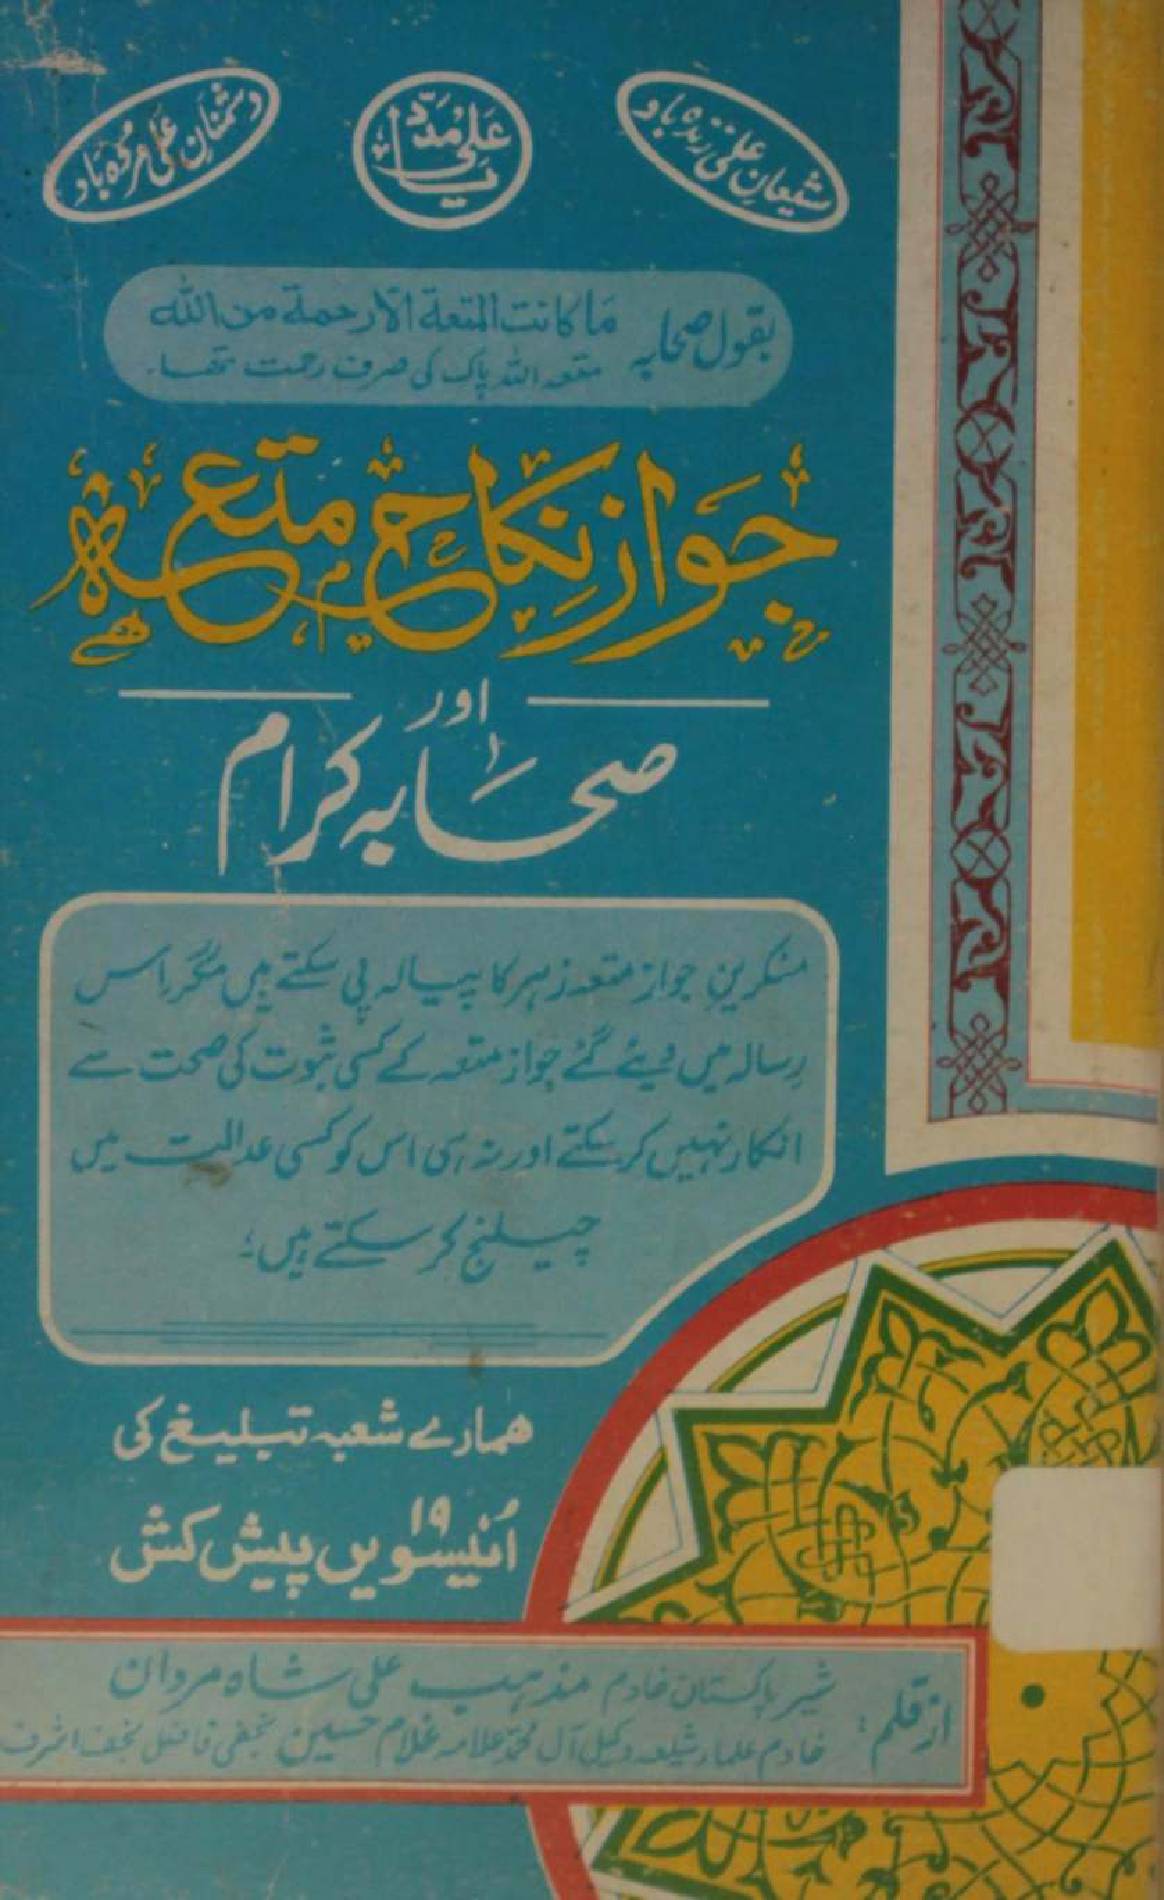 شیعانِ علی زندہ باد
یا علی مدد
دشمنانِ علی مردہ باد
بقول صحابہ
مَا کانت المتعة الّا رحمة من اللہ
متعہ اللہ پاک کی صرف رحمت تھا۔
جَواز نِکاح مُتعہ
اور
صحابہ کرام
منکرینِ جواز متعہ زہر کا پیالہ پی سکتے ہیں مگر اس
رسالہ میں دیئے گئے جواز متعہ کے کسی ثبوت کی صحت سے
انکار نہیں کر سکتے اور نہ ہی اس کو کسی عدالت میں
چیلنج کر سکتے ہیں؛
ھمارے شعبہ تبلیغ کی
۱۹
اُنیسویں پیش کش
از قلم:
شیر پاکستان خادم مذہب علی شاہ مردان
خادم علماء شیعہ وکیل آل محمدؐ علامہ غلام حسین نجفی فاضل نجف اشرف